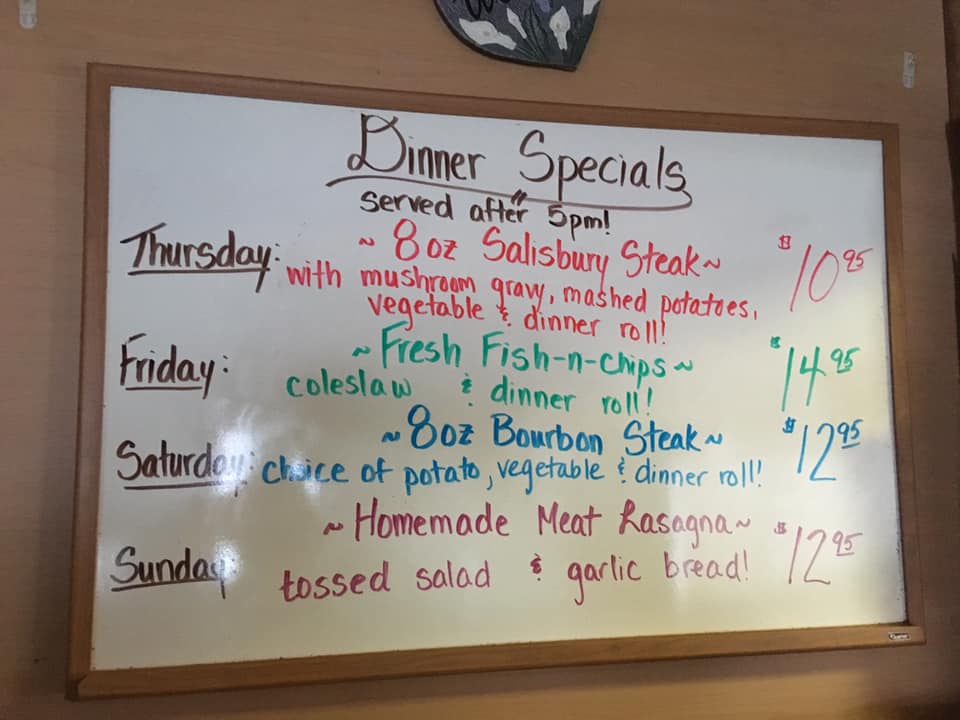 Dinner Specials
served after 5pm!
Thursday: ~ 8oz Salisbury Steak~ $10.95
with mushroom gravy, mashed potatoes,
vegetable & dinner roll!
Friday: ~ Fresh Fish-n-chips ~ $14.95
coleslaw & dinner roll!
~ 8oz Bourbon Steak ~ $12.95
Saturday: choice of potato, vegetable & dinner roll!
~ Homemade Meat Lasagna ~ $12.95
Sunday: tossed salad & garlic bread!